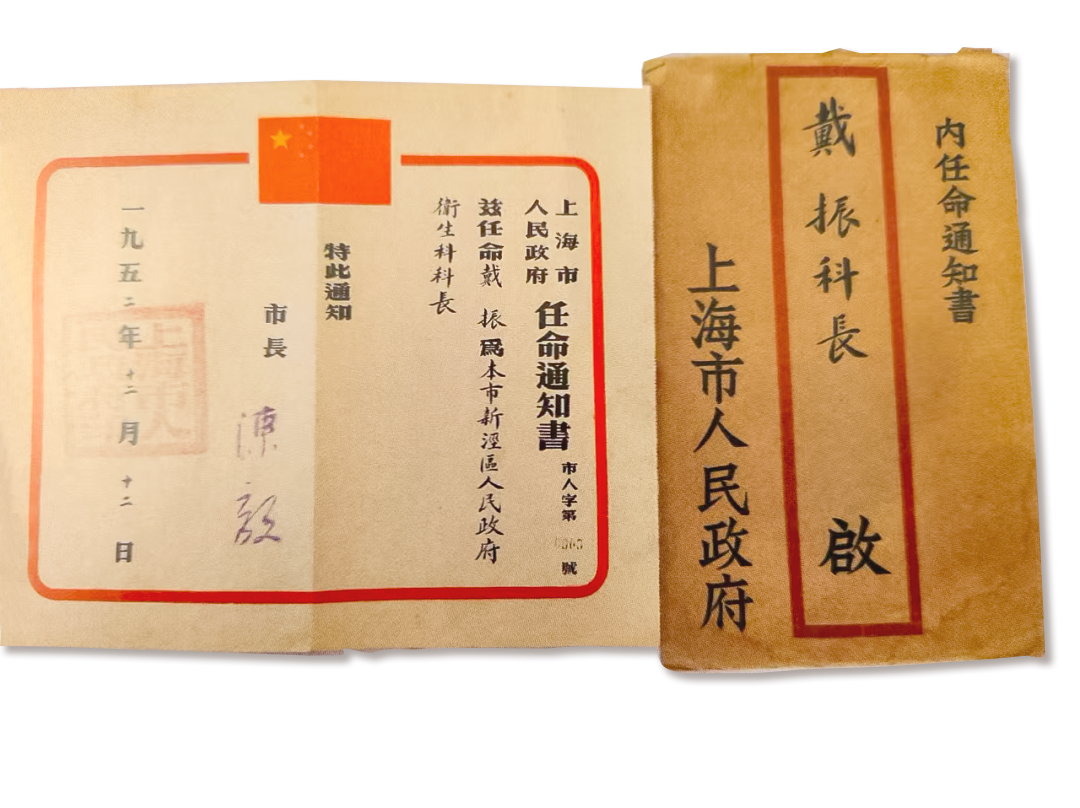 上海市
人民政府
任命通知書
市人字第 號
茲任命戴 振爲本市新涇區人民政府
衛生科科長
特此通知
市長
陳毅
一九五二年十二月十二日
内任命通知書
戴振科長 啟
上海市人民政府